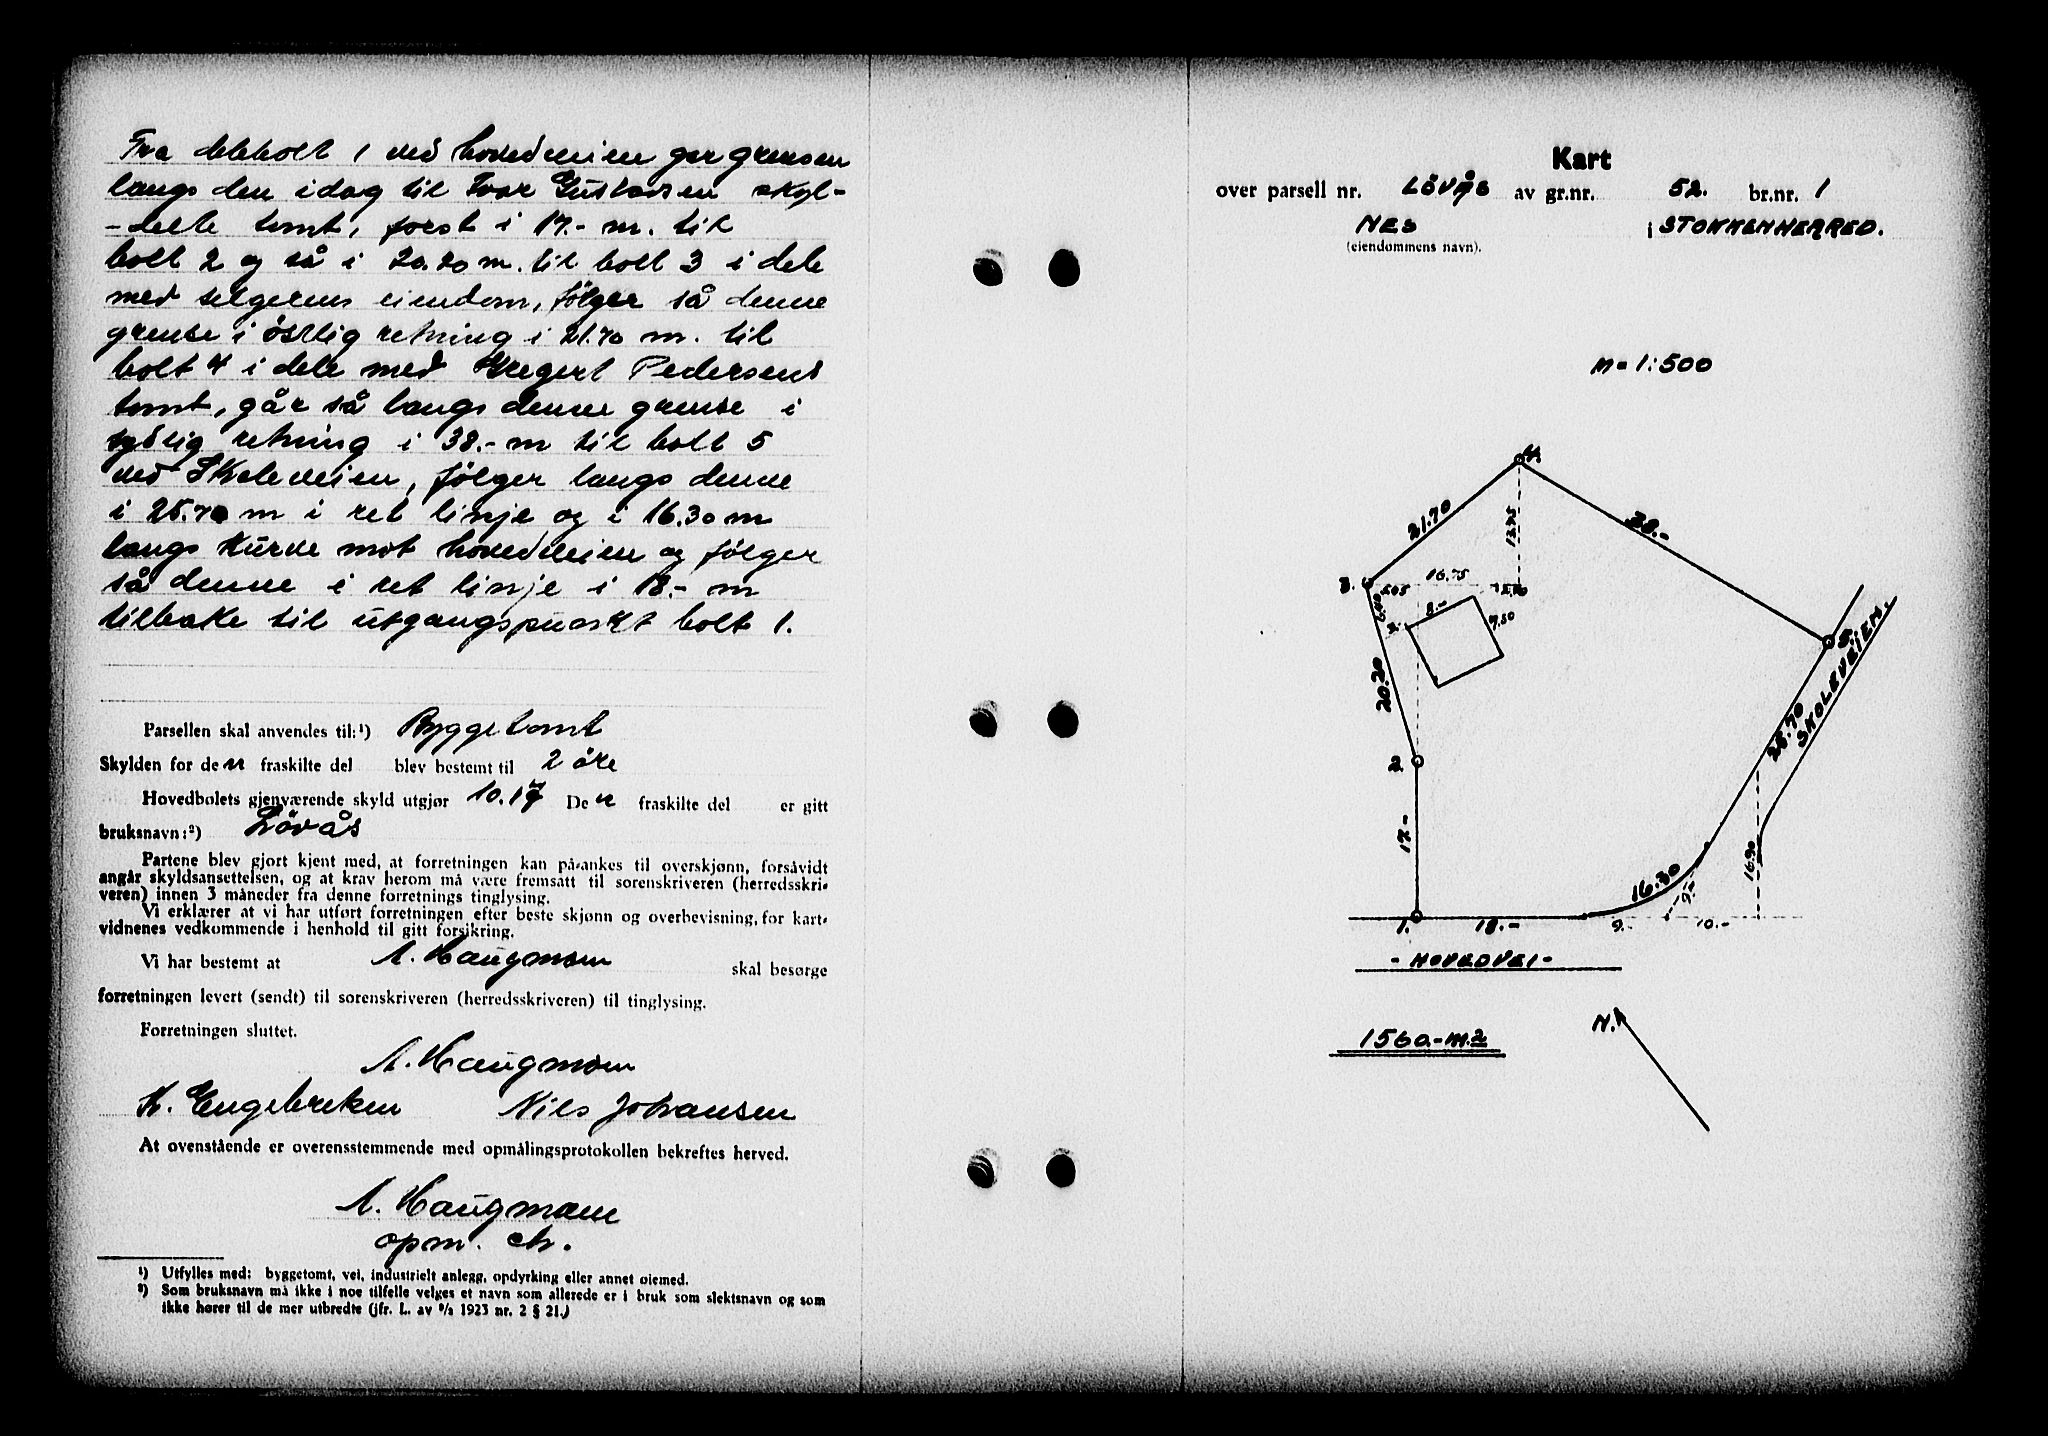 Fra delebolt 1 ved hovedveien gar grensen
langs den idag til Ivar Gustavsen skyl-
-delte tomt, først i 17.- m. til
bolt 2 og så i 20.20 m. til bolt 3 i dele
med selgerens eiendom, følger så denne
grense i östlig retning i 21.70 m. til
bolt 4 i dele med Pedersens
tomt, går så langs denne grense i
sydlig retning i 38.- m til bolt 5
ved Skoleveien, følger langs denne
i 25.70 m i ret linje og i 16.30 m
langs kurve mot hovedveien og følger
så denne i ret linje i 18.- m
tilbake til utgangspunkt bolt 1.
Parsellen skal anvendes til:¹) Byggetomt
Skylden for den fraskilte del blev bestemt til 2 öre
Hovedbølets gjenværende skyld utgjør 10.17 Den fraskilte del er gitt
bruksnavn:²) Lövås
Partene blev gjort kjent med, at forretningen kan på-ankes til overskjønn, forsåvidt
angår skyldsansettelsen, og at krav herom må være fremsatt til sorenskriveren (herredsskri-
veren) innen 3 måneder fra denne forretnings tinglysing.
Vi erklærer at vi har utført forretningen efter beste skjønn og overbevisning, for kart-
vidnenes vedkommende i henhold til gitt forsikring.
Vi har bestemt at A. Haugmoen skal besørge
forretningen levert (sendt) til sorenskriveren (herredsskriveren) til tinglysing.
Forretningen sluttet.
A. Haugmoen
K. Engebretsen Nils Johansen
At ovenstående er overensstemmende med opmålingsprotokollen bekreftes herved.
A. Haugmoen
opm. ch.
¹) Utfylles med: byggetomt, vei, industrielt anlegg, opdyrking eller annet øiemed.
²) Som bruksnavn må ikke i noe tilfelle velges et navn som allerede er i bruk som slektsnavn og som
ikke hører til de mer utbredte (jfr. L. av ⁹/₂ 1923 nr. 2 § 21.)
Kart
over parsell nr. LÖVÅS av gr.nr. 52. br.nr. 1
NES i STOKKENHERRED.
(eiendommens navn).
M = 1:500
4.
21.70
38.-
13.75
16.75
3.
5.05
8.-
7.50
5.
20.20
SKOLEVEIEN.
25.70
2.
17.-
16.90
16.30
9.-
1.
18.-
9.-
10.-
- HOVEDVEI -
1560.- m.2
N.